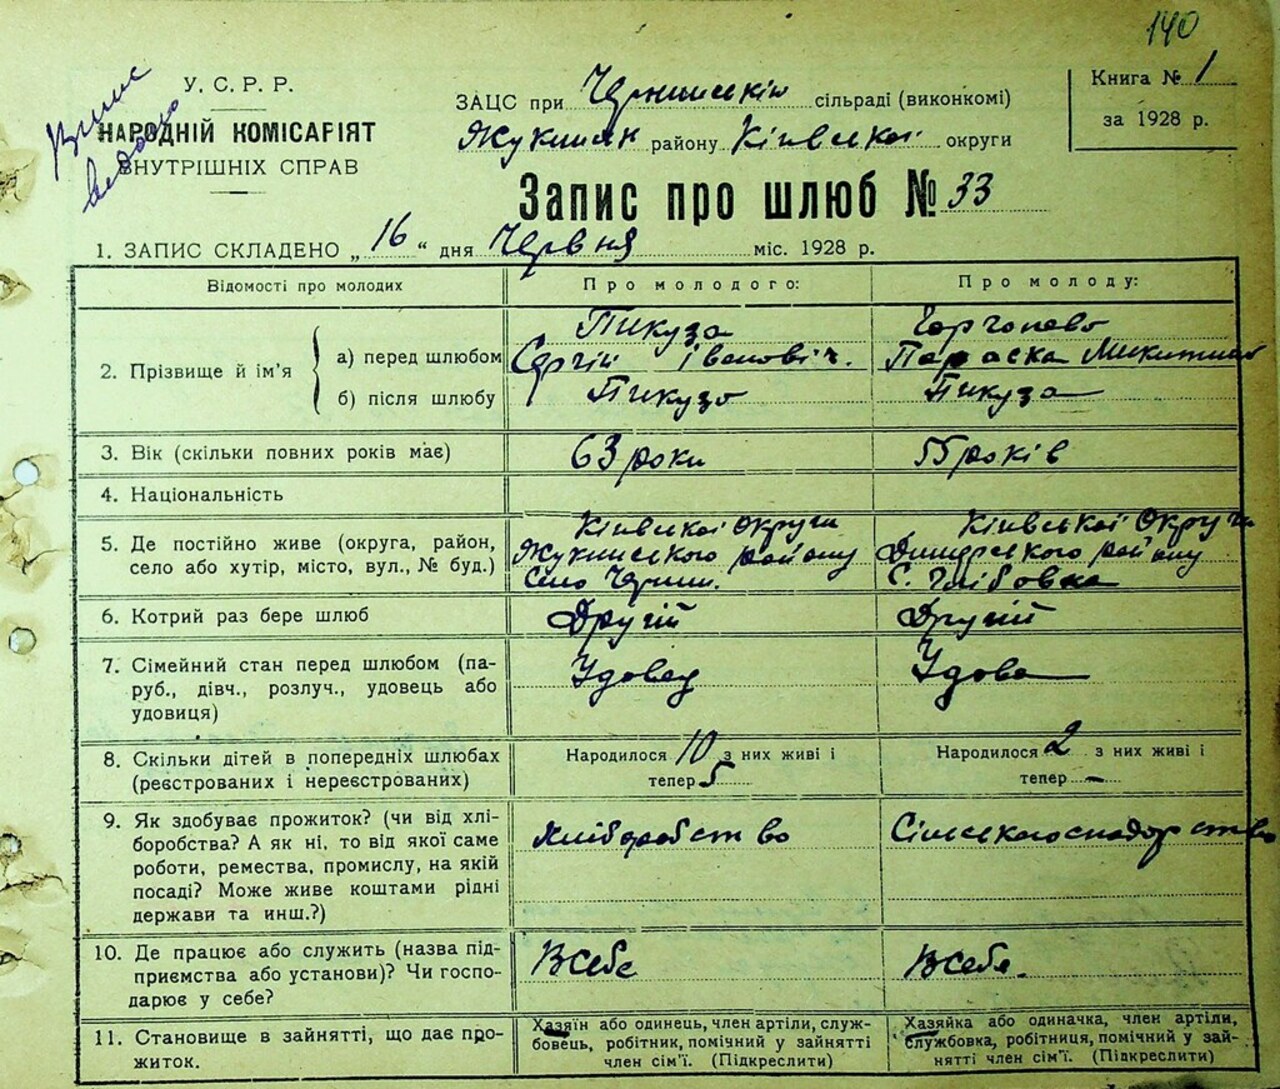 140
У. С. Р. Р.
НАРОДНІЙ КОМІСАРІЯТ
ВНУТРІШНІХ СПРАВ
ЗАЦС при сільраді (виконкомі)
району Київської округи
Книга № 1
за 1928 р.
Запис про шлюб № 33
1. ЗАПИС СКЛАДЕНО „ 16 “ дня Червня міс. 1928 р.
Відомості про молодих
Про молодого:
Про молоду:
2. Прізвище й ім’я
а) перед шлюбом
б) після шлюбу
Пикуза
Сергій Іванович.
Пикуза
Параска
Пикуза
3. Вік (скільки повних років має)
63 роки
55 років
4. Національність
5. Де постійно живе (округа, район,
село або хутір, місто, вул., № буд.)
Київської Округи
Жукинського району
Село Чернин.
Київської Округи
Димерського району
с. Глібовка
6. Котрий раз бере шлюб
Другий
Другий
7. Сімейний стан перед шлюбом (па-
руб., дівч., розлуч., удовець або
удовиця)
Удовец
Удова
8. Скільки дітей в попередніх шлюбах
(реєстрованих і нереєстрованих)
Народилося 10 з них живі і
тепер 5
Народилося 2 з них живі і
тепер —
9. Як здобуває прожиток? (чи від хлі-
боробства? А як ні, то від якої саме
роботи, ремества, промислу, на якій
посаді? Може живе коштами рідні
держави та инш.?)
Хліборобство
10. Де працює або служить (назва під-
приємства або установи)? Чи госпо-
дарює у себе?
В себе
В себя.
11. Становище в зайнятті, що дає про-
житок.
Хазяїн або одинець, член артіли, служ-
бовець, робітник, помічний у зайнятті
член сім’ї. (Підкреслити)
Хазяйка або одиначка, член артіли,
службовка, робітниця, помічний у зай-
нятті член сім’ї. (Підкреслити)